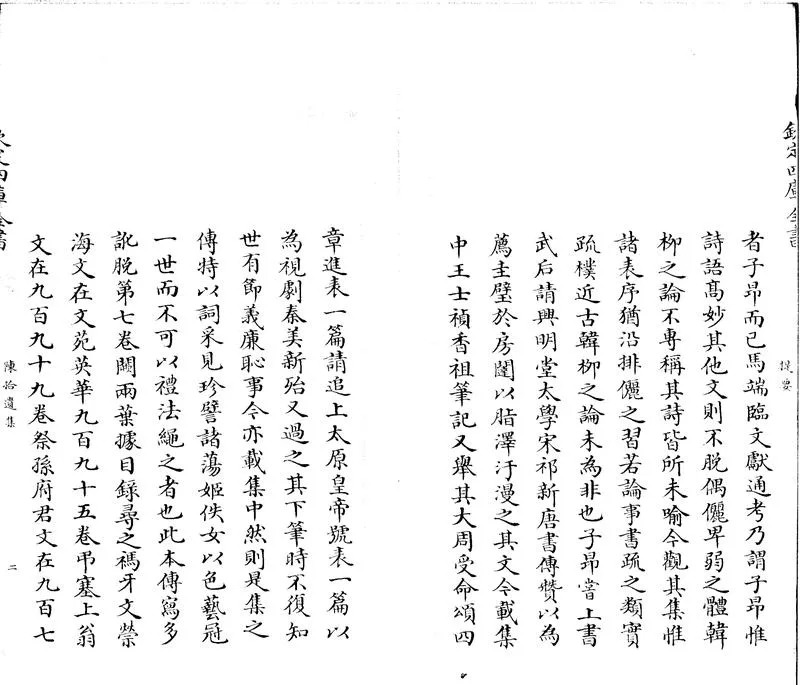 欽定四庫全書
提要
者子昂而已馬端臨文獻通考乃謂子昂惟
詩語髙妙其他文則不脱偶儷卑弱之體韓
柳之論不專稱其詩皆所未喻今觀其集惟
諸表序猶沿排儷之習若論事書疏之類實
疏樸近古韓柳之論未為非也子昂嘗上書
武后請興明堂太學宋祁新唐書傳贊以為
薦圭璧於房闥以脂澤汙漫之其文今載集
中王士禎香祖筆記又舉其大周受命頌四
章進表一篇請追上太原皇帝號表一篇以
為視劇秦美新殆又過之其下筆時不復知
世有節義廉恥事今亦載集中然則是集之
傳特以詞采見珍譬諸蕩姬佚女以色藝冠
一世而不可以禮法繩之者也此本傳寫多
訛脱第七卷闕兩葉據目録尋之禡牙文禜
海文在文苑英華九百九十五卷弔塞上翁
文在九百九十九卷祭孫府君文在九百七
欽定四庫全書
陳拾遺集
二